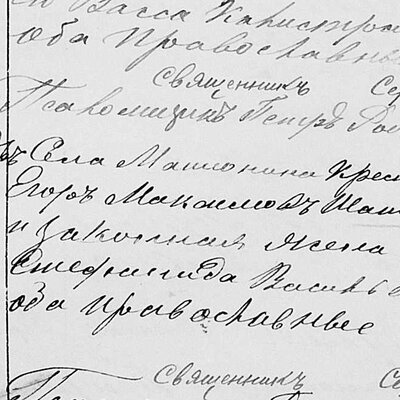 Васса
оба православные
Священникъ
Псаломщикъ Петръ
Села Машонкина Крес
Егоръ Максимовъ Шат
и законная жена
Стефанида Василье
оба православные
Священникъ